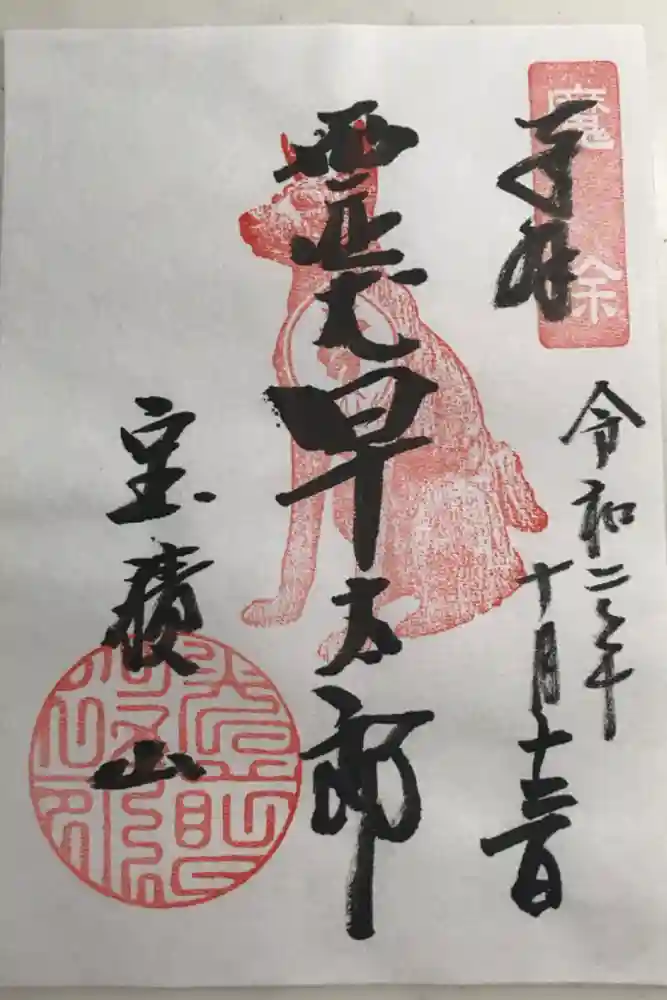 魔除
奉拝
令和二年
十月
霊犬早太郎
宝積山